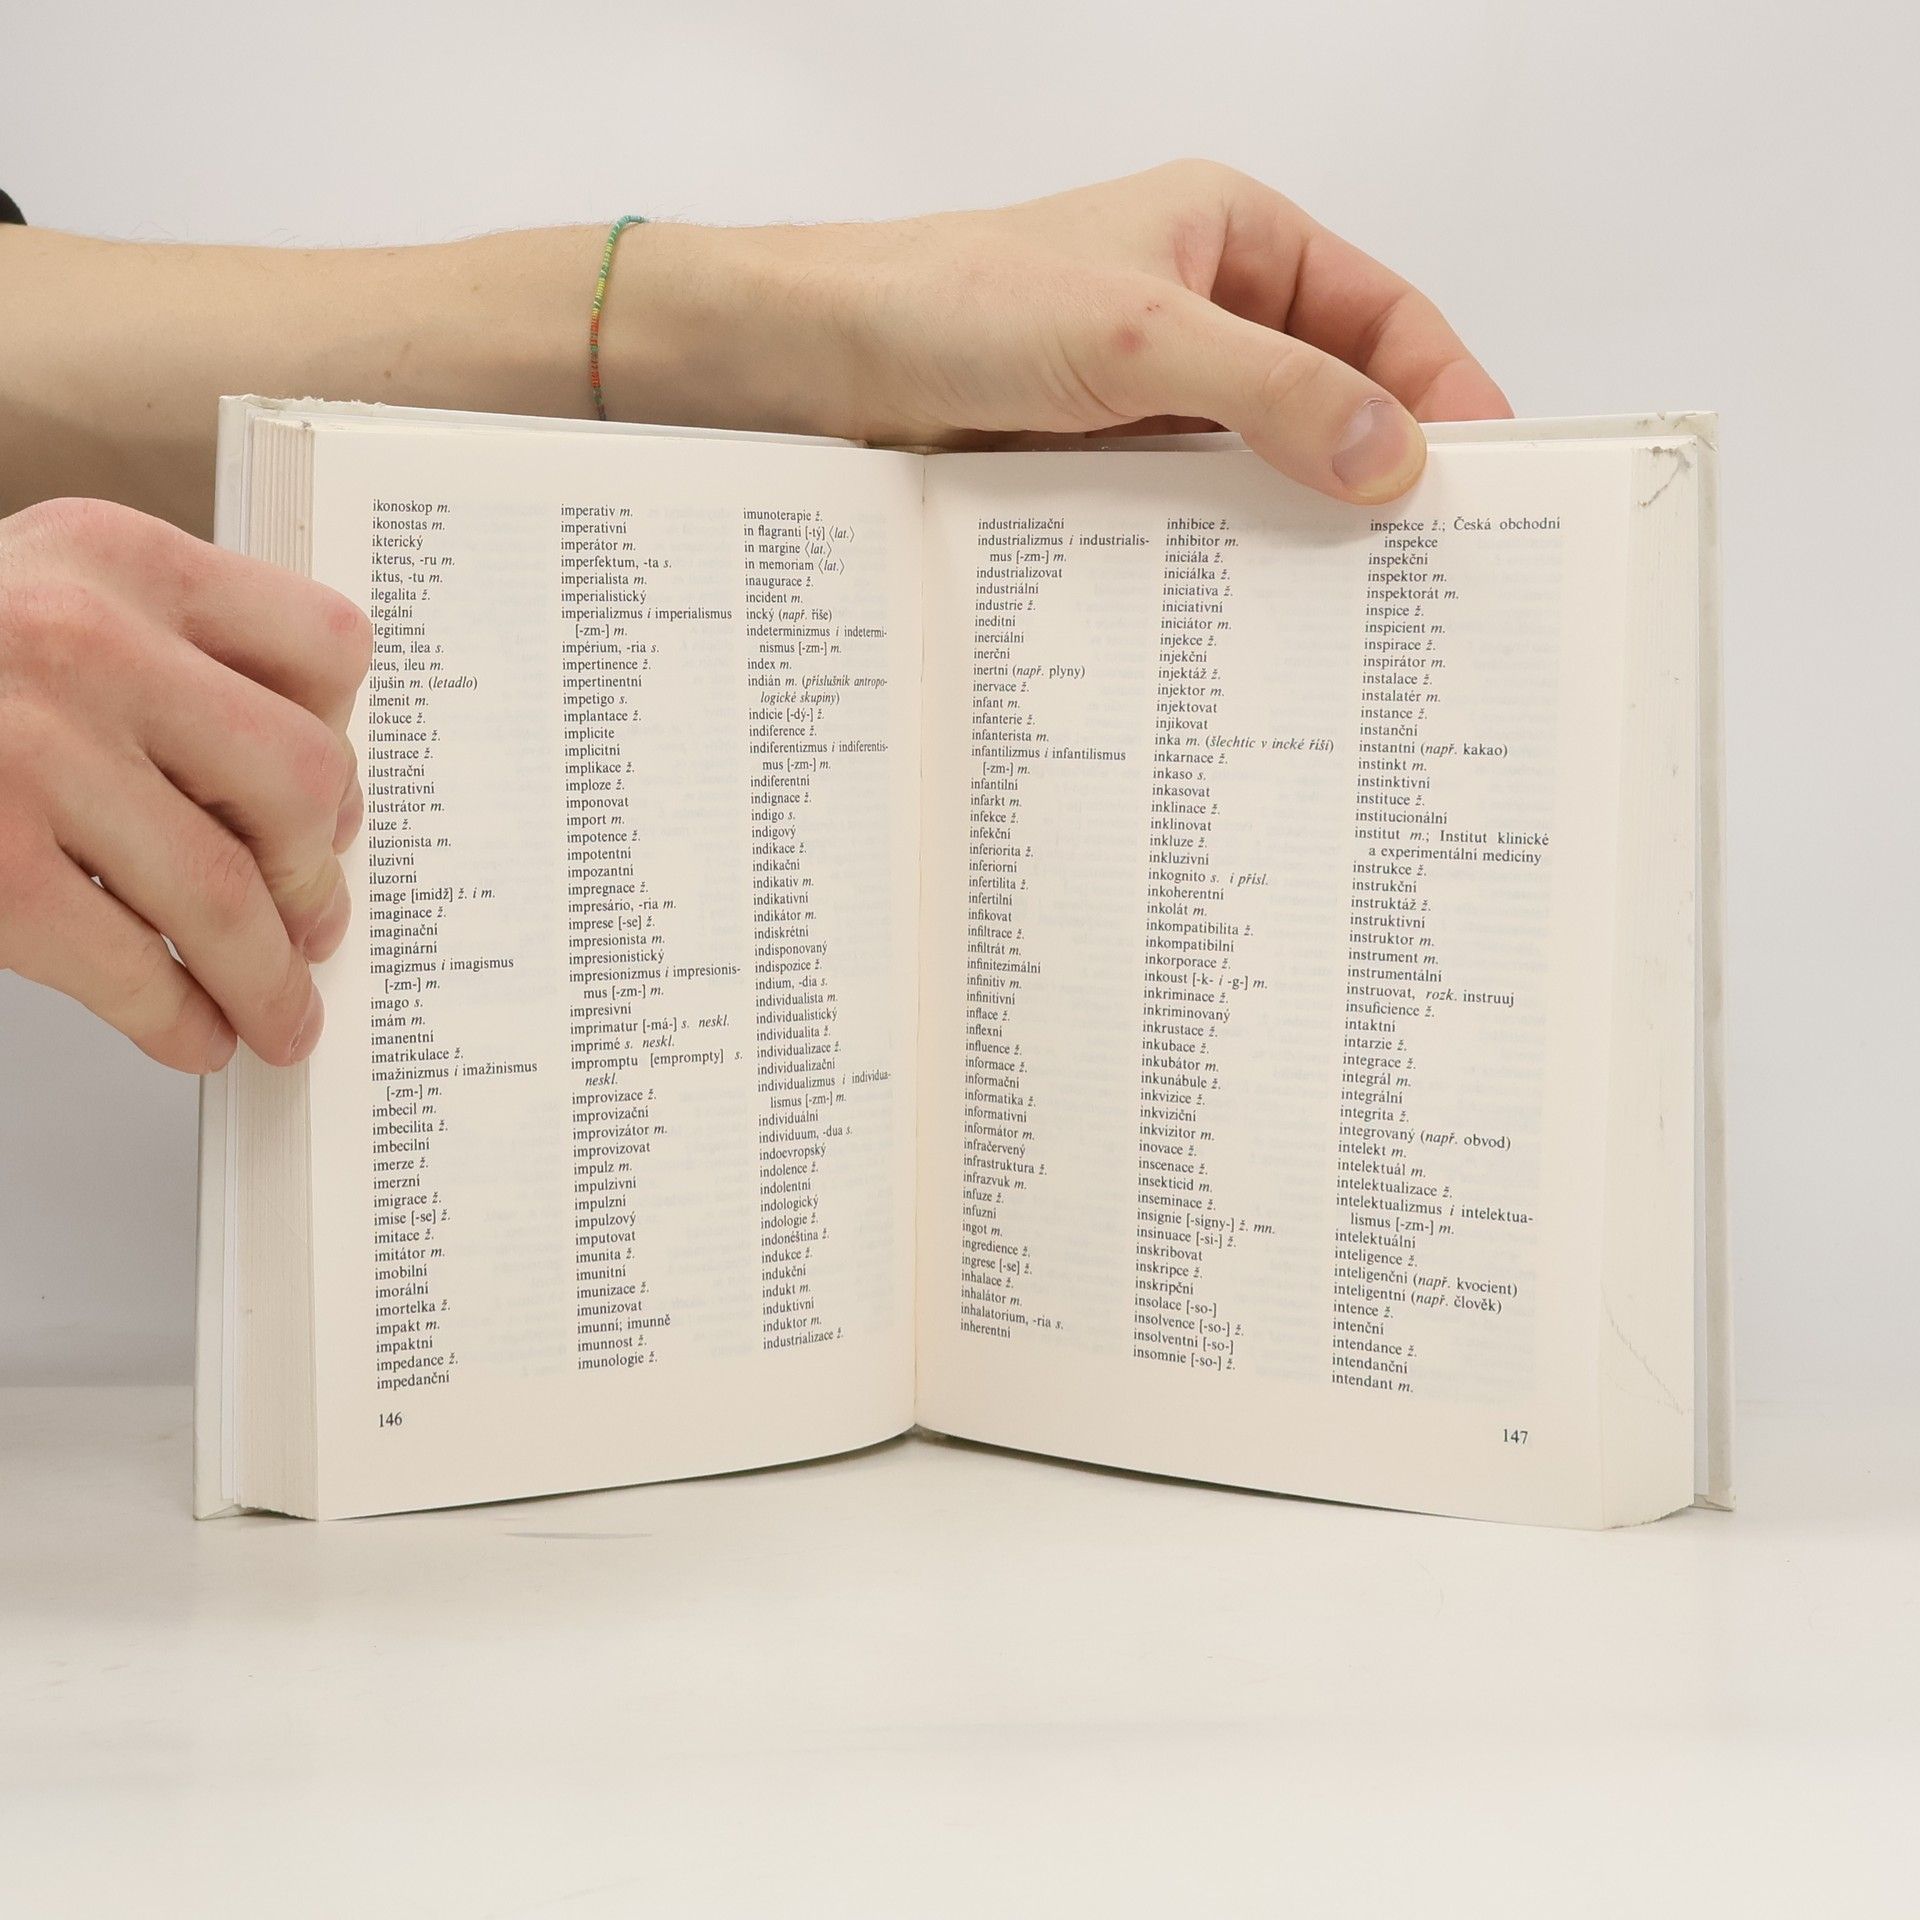 ikonoskop m.
ikonostas m.
ikterický
ikterus, -ru m.
iktus, -tu m.
ilegalita ž.
ilegální
ilegitimní
ileum, ilea s.
ileus, ileu m.
iljušin m. (letadlo)
ilmenit m.
ilokuce ž.
iluminace ž.
ilustrace ž.
ilustrační
ilustrativní
ilustrátor m.
iluze ž.
iluzionista m.
iluzivní
iluzorní
image [imidž] ž. i m.
imaginace ž.
imaginační
imaginární
imagizmus i imagismus
[-zm-] m.
imago s.
imám m.
imanentní
imatrikulace ž.
imažinizmus i imažinismus
[-zm-] m.
imbecil m.
imbecilita ž.
imbecilní
imerze ž.
imerzní
imigrace ž.
imise [-se] ž.
imitace ž.
imitátor m.
imobilní
imorální
imortelka ž.
impakt m.
impaktní
impedance ž.
impedanční
imperativ m.
imperativní
imperátor m.
imperfektum, -ta s.
imperialista m.
imperialistický
imperializmus i imperialismus
[-zm-] m.
impérium, -ria s.
impertinence ž.
impertinentní
impetigo s.
implantace ž.
implicite
implicitní
implikace ž.
imploze ž.
imponovat
import m.
impotence ž.
impotentní
impozantní
impregnace ž.
impresário, -ria m.
imprese [-se] ž.
impresionista m.
impresionistický
impresionizmus i impresionis-
mus [-zm-] m.
impresivní
imprimatur [-má-] s. neskl.
imprimé s. neskl.
impromptu [emprompty] s.
neskl.
improvizace ž.
improvizační
improvizátor m.
improvizovat
impulz m.
impulzivní
impulzní
impulzový
imputovat
imunita ž.
imunitní
imunizace ž.
imunizovat
imunní; imunně
imunnost ž.
imunologie ž.
imunoterapie ž.
in flagranti [-tý] ⟨lat.⟩
in margine ⟨lat.⟩
in memoriam ⟨lat.⟩
inaugurace ž.
incident m.
incký (např. říše)
indeterminizmus i indetermi-
nismus [-zm-] m.
index m.
indián m. (příslušník antropo-
logické skupiny)
indicie [-dý-] ž.
indiference ž.
indiferentizmus i indiferentis-
mus [-zm-] m.
indiferentní
indignace ž.
indigo s.
indigový
indikace ž.
indikační
indikativ m.
indikativní
indikátor m.
indiskrétní
indisponovaný
indispozice ž.
indium, -dia s.
individualista m.
individualistický
individualita ž.
individualizace ž.
individualizační
individualizmus i individua-
lismus [-zm-] m.
individuální
individuum, -dua s.
indoevropský
indolence ž.
indolentní
indologický
indologie ž.
indonéština ž.
indukce ž.
indukční
indukt m.
induktivní
induktor m.
industrializace ž.
146
industrializační
industrializmus i industrialis-
mus [-zm-] m.
industrializovat
industriální
industrie ž.
ineditní
inerciální
inerční
inertní (např. plyny)
inervace ž.
infant m.
infanterie ž.
infanterista m.
infantilizmus i infantilismus
[-zm-] m.
infantilní
infarkt m.
infekce ž.
infekční
inferiorita ž.
inferiorní
infertilita ž.
infertilní
infikovat
infiltrace ž.
infiltrát m.
infinitezimální
infinitiv m.
infinitivní
inflace ž.
inflexní
influence ž.
informace ž.
informační
informatika ž.
informativní
informátor m.
infračervený
infrastruktura ž.
infrazvuk m.
infuze ž.
infuzní
ingot m.
ingredience ž.
ingrese [-se] ž.
inhalace ž.
inhalátor m.
inhalatorium, -ria s.
inherentní
inhibice ž.
inhibitor m.
iniciála ž.
iniciálka ž.
iniciativa ž.
iniciativní
iniciátor m.
injekce ž.
injekční
injektáž ž.
injektor m.
injektovat
injikovat
inka m. (šlechtic v incké říši)
inkarnace ž.
inkaso s.
inkasovat
inklinace ž.
inklinovat
inkluze ž.
inkluzivní
inkognito s. i přísl.
inkoherentní
inkolát m.
inkompatibilita ž.
inkompatibilní
inkorporace ž.
inkoust [-k- i -g-] m.
inkriminace ž.
inkriminovaný
inkrustace ž.
inkubace ž.
inkubátor m.
inkunábule ž.
inkvizice ž.
inkviziční
inkvizitor m.
inovace ž.
inscenace ž.
insekticid m.
inseminace ž.
insignie [-signy-] ž. mn.
insinuace [-si-] ž.
inskribovat
inskripce ž.
inskripční
insolace [-so-]
insolvence [-so-] ž.
insolventní [-so-]
insomnie [-so-] ž.
inspekce ž.; Česká obchodní
inspekce
inspekční
inspektor m.
inspektorát m.
inspice ž.
inspicient m.
inspirace ž.
inspirátor m.
instalace ž.
instalatér m.
instance ž.
instanční
instantní (např. kakao)
instinkt m.
instinktivní
instituce ž.
institucionální
institut m.; Institut klinické
a experimentální medicíny
instrukce ž.
instrukční
instruktáž ž.
instruktivní
instruktor m.
instrument m.
instrumentální
instruovat, rozk. instruuj
insuficience ž.
intaktní
intarzie ž.
integrace ž.
integrál m.
integrální
integrita ž.
integrovaný (např. obvod)
intelekt m.
intelektuál m.
intelektualizace ž.
intelektualizmus i intelektua-
lismus [-zm-] m.
intelektuální
inteligence ž.
inteligenční (např. kvocient)
inteligentní (např. člověk)
intence ž.
intenční
intendance ž.
intendanční
intendant m.
147